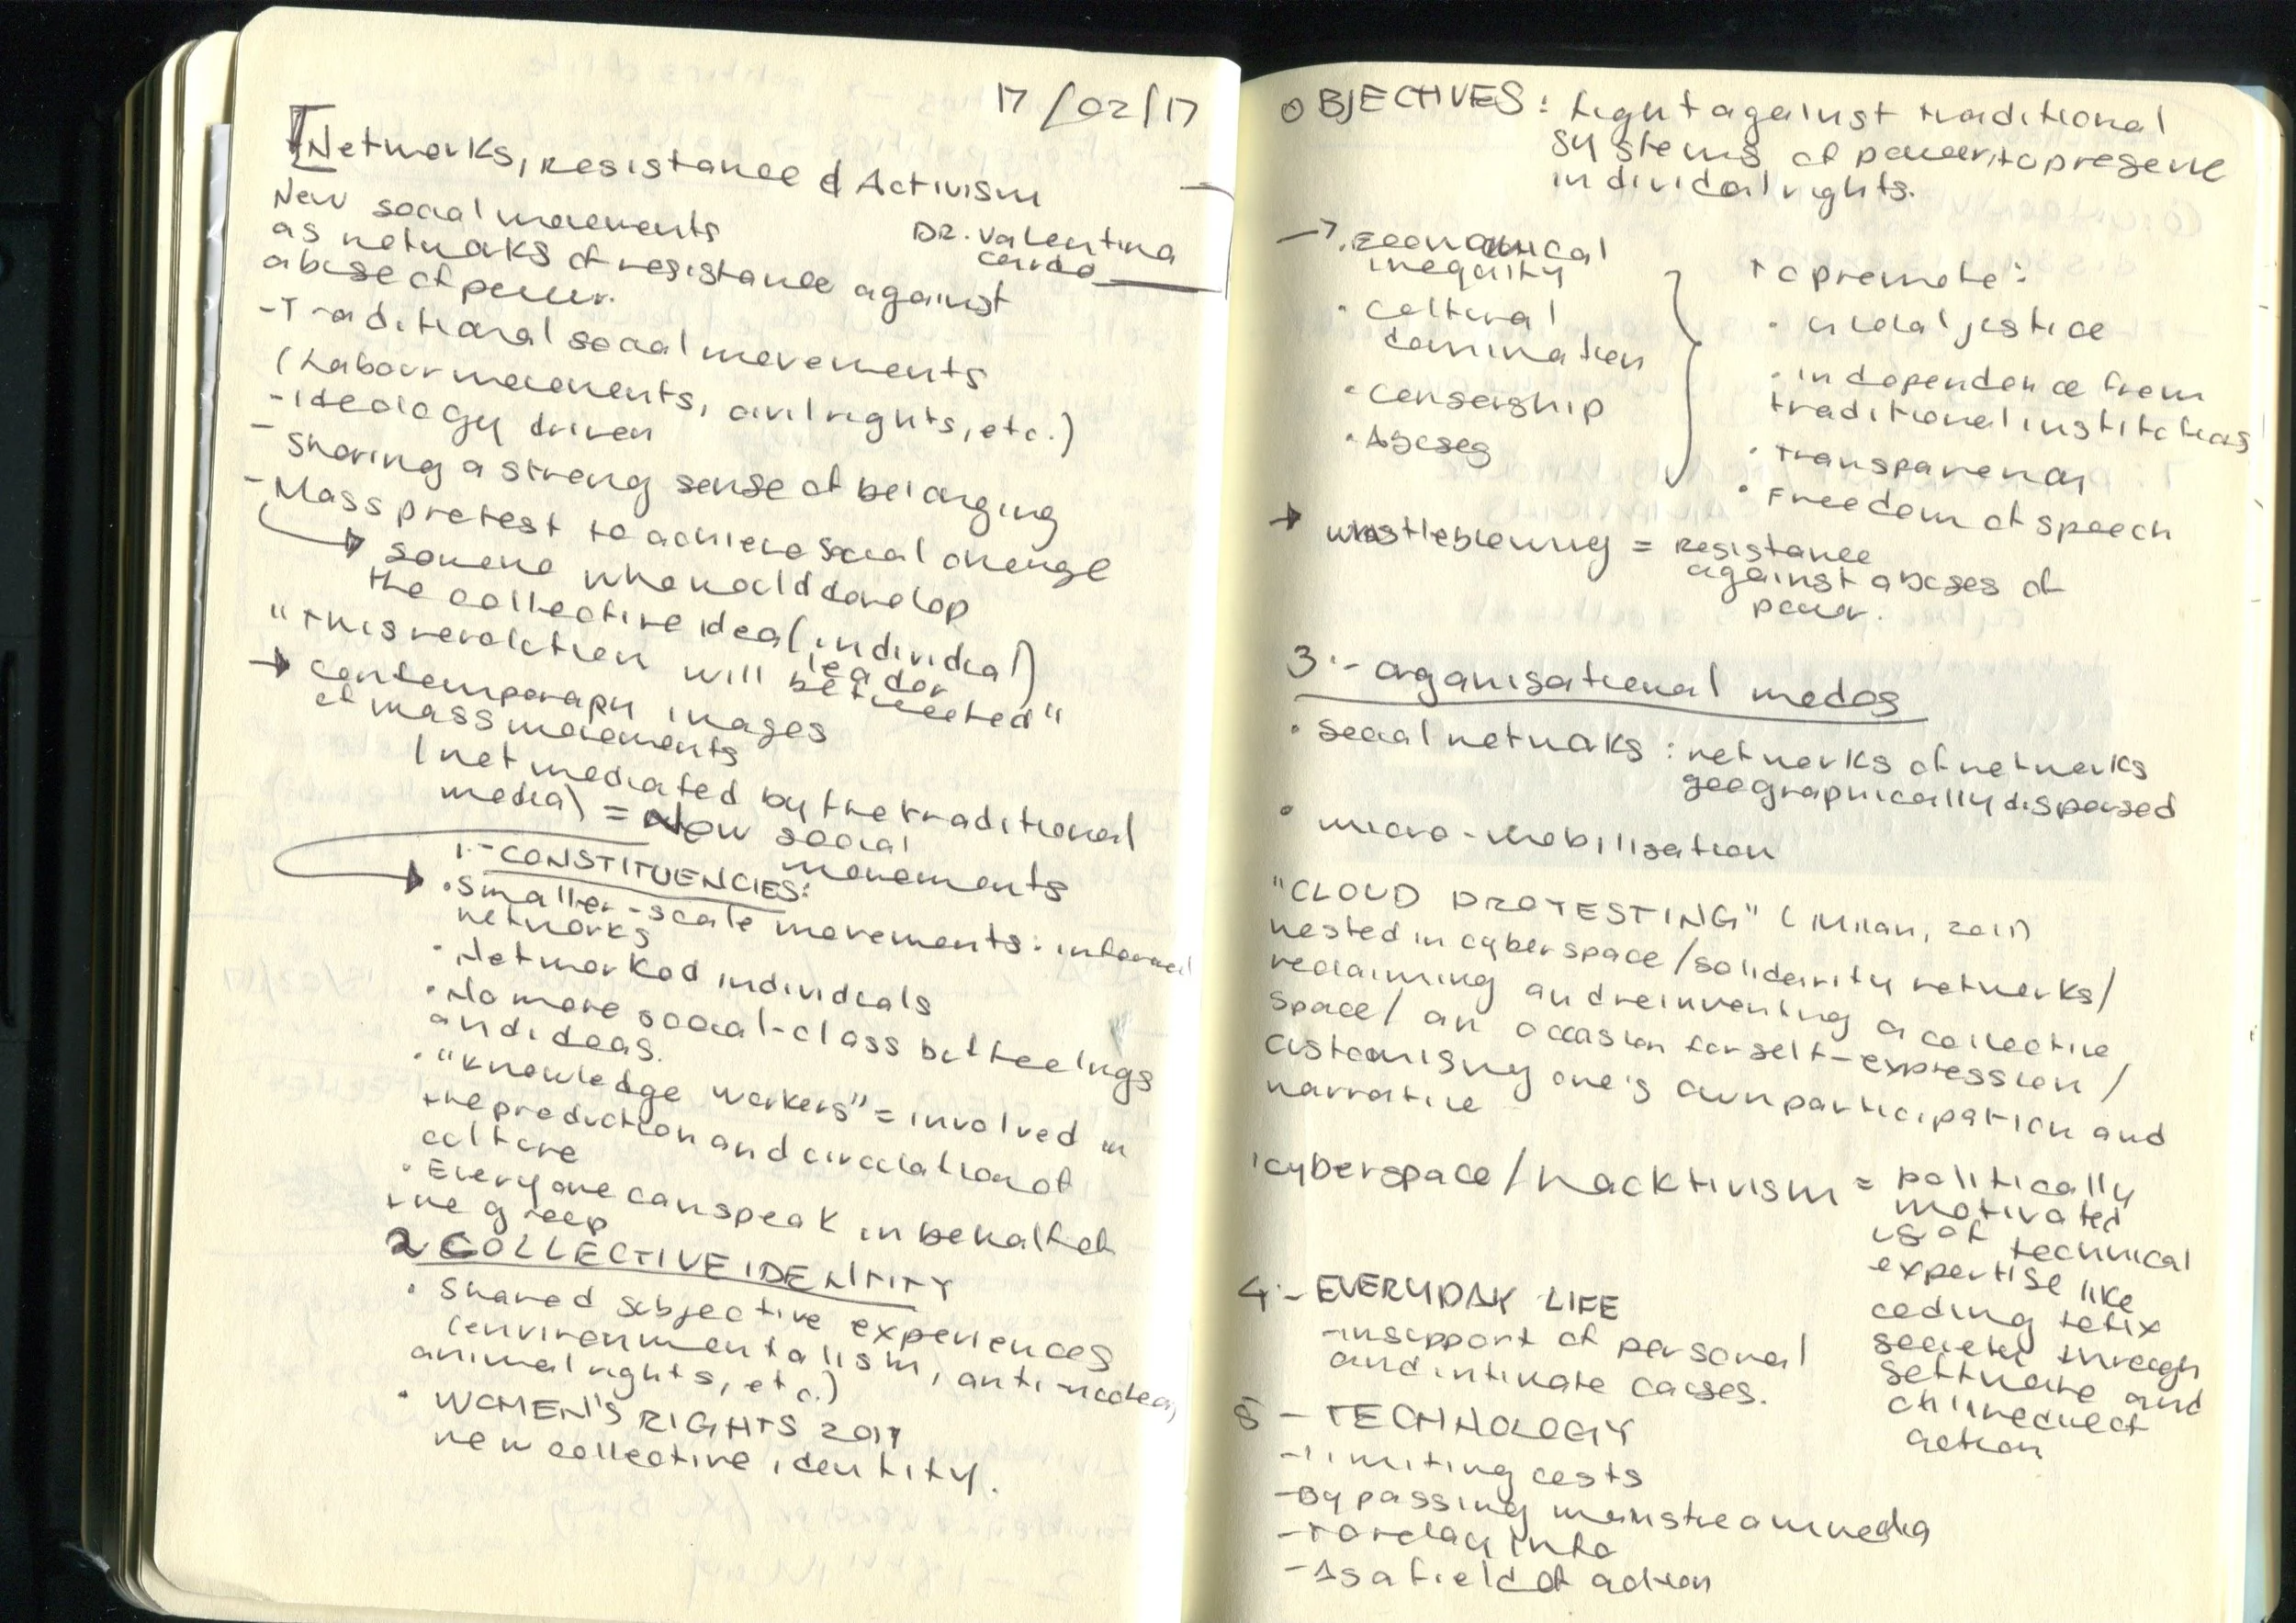 17/02/17
Networks, Resistance & Activism
New social movements
Dr. Valentina
Cardo
as networks of resistance against
abuse of power.
- Traditional social movements
(Labour movements, civil rights, etc.)
- Ideology driven
- Sharing a strong sense of belonging
- Mass protest to achieve social change
someone who would develop
the collective idea (individual)
leader
"This revolution will be tweeted"
→ contemporary images
of mass movements
(not mediated by the traditional
media) = New social
movements
1.- CONSTITUENCIES:
• Smaller-scale movements: informal
networks
• Networked individuals
• No more social-class but feelings
and ideas.
• "Knowledge workers" = involved in
the production and circulation of
culture
• Everyone can speak in behalf of
the group
2 COLLECTIVE IDENTITY
• Shared subjective experiences
(environmentalism, anti-nuclear,
animal rights, etc.)
• WOMEN'S RIGHTS 2017
new collective identity.
OBJECTIVES: fight against traditional
systems of power, to preserve
individual rights.
→ • Economical
inequality
• Cultural
domination
• Censorship
• Abuses
To promote:
• global justice
• independence from
traditional institutions
• Transparency
• Freedom of speech
→ Whistleblowing = Resistance
against abuses of
power.
3.- Organisational modes
• Social networks: networks of networks
geographically dispersed
• micro-mobilisation
"CLOUD PROTESTING" (Milan, 2011)
nested in cyberspace/solidarity networks/
reclaiming and reinventing a collective
space/ an occasion for self-expression/
customising one's own participation and
narrative
• cyberspace/hacktivism = politically
motivated
use of technical
expertise like
coding to fix
society through
software and
online direct
action
4.- EVERYDAY LIFE
- in support of personal
and intimate causes.
5 - TECHNOLOGY
- limiting costs
- Bypassing mainstream media
- To relay info
- As a field of action